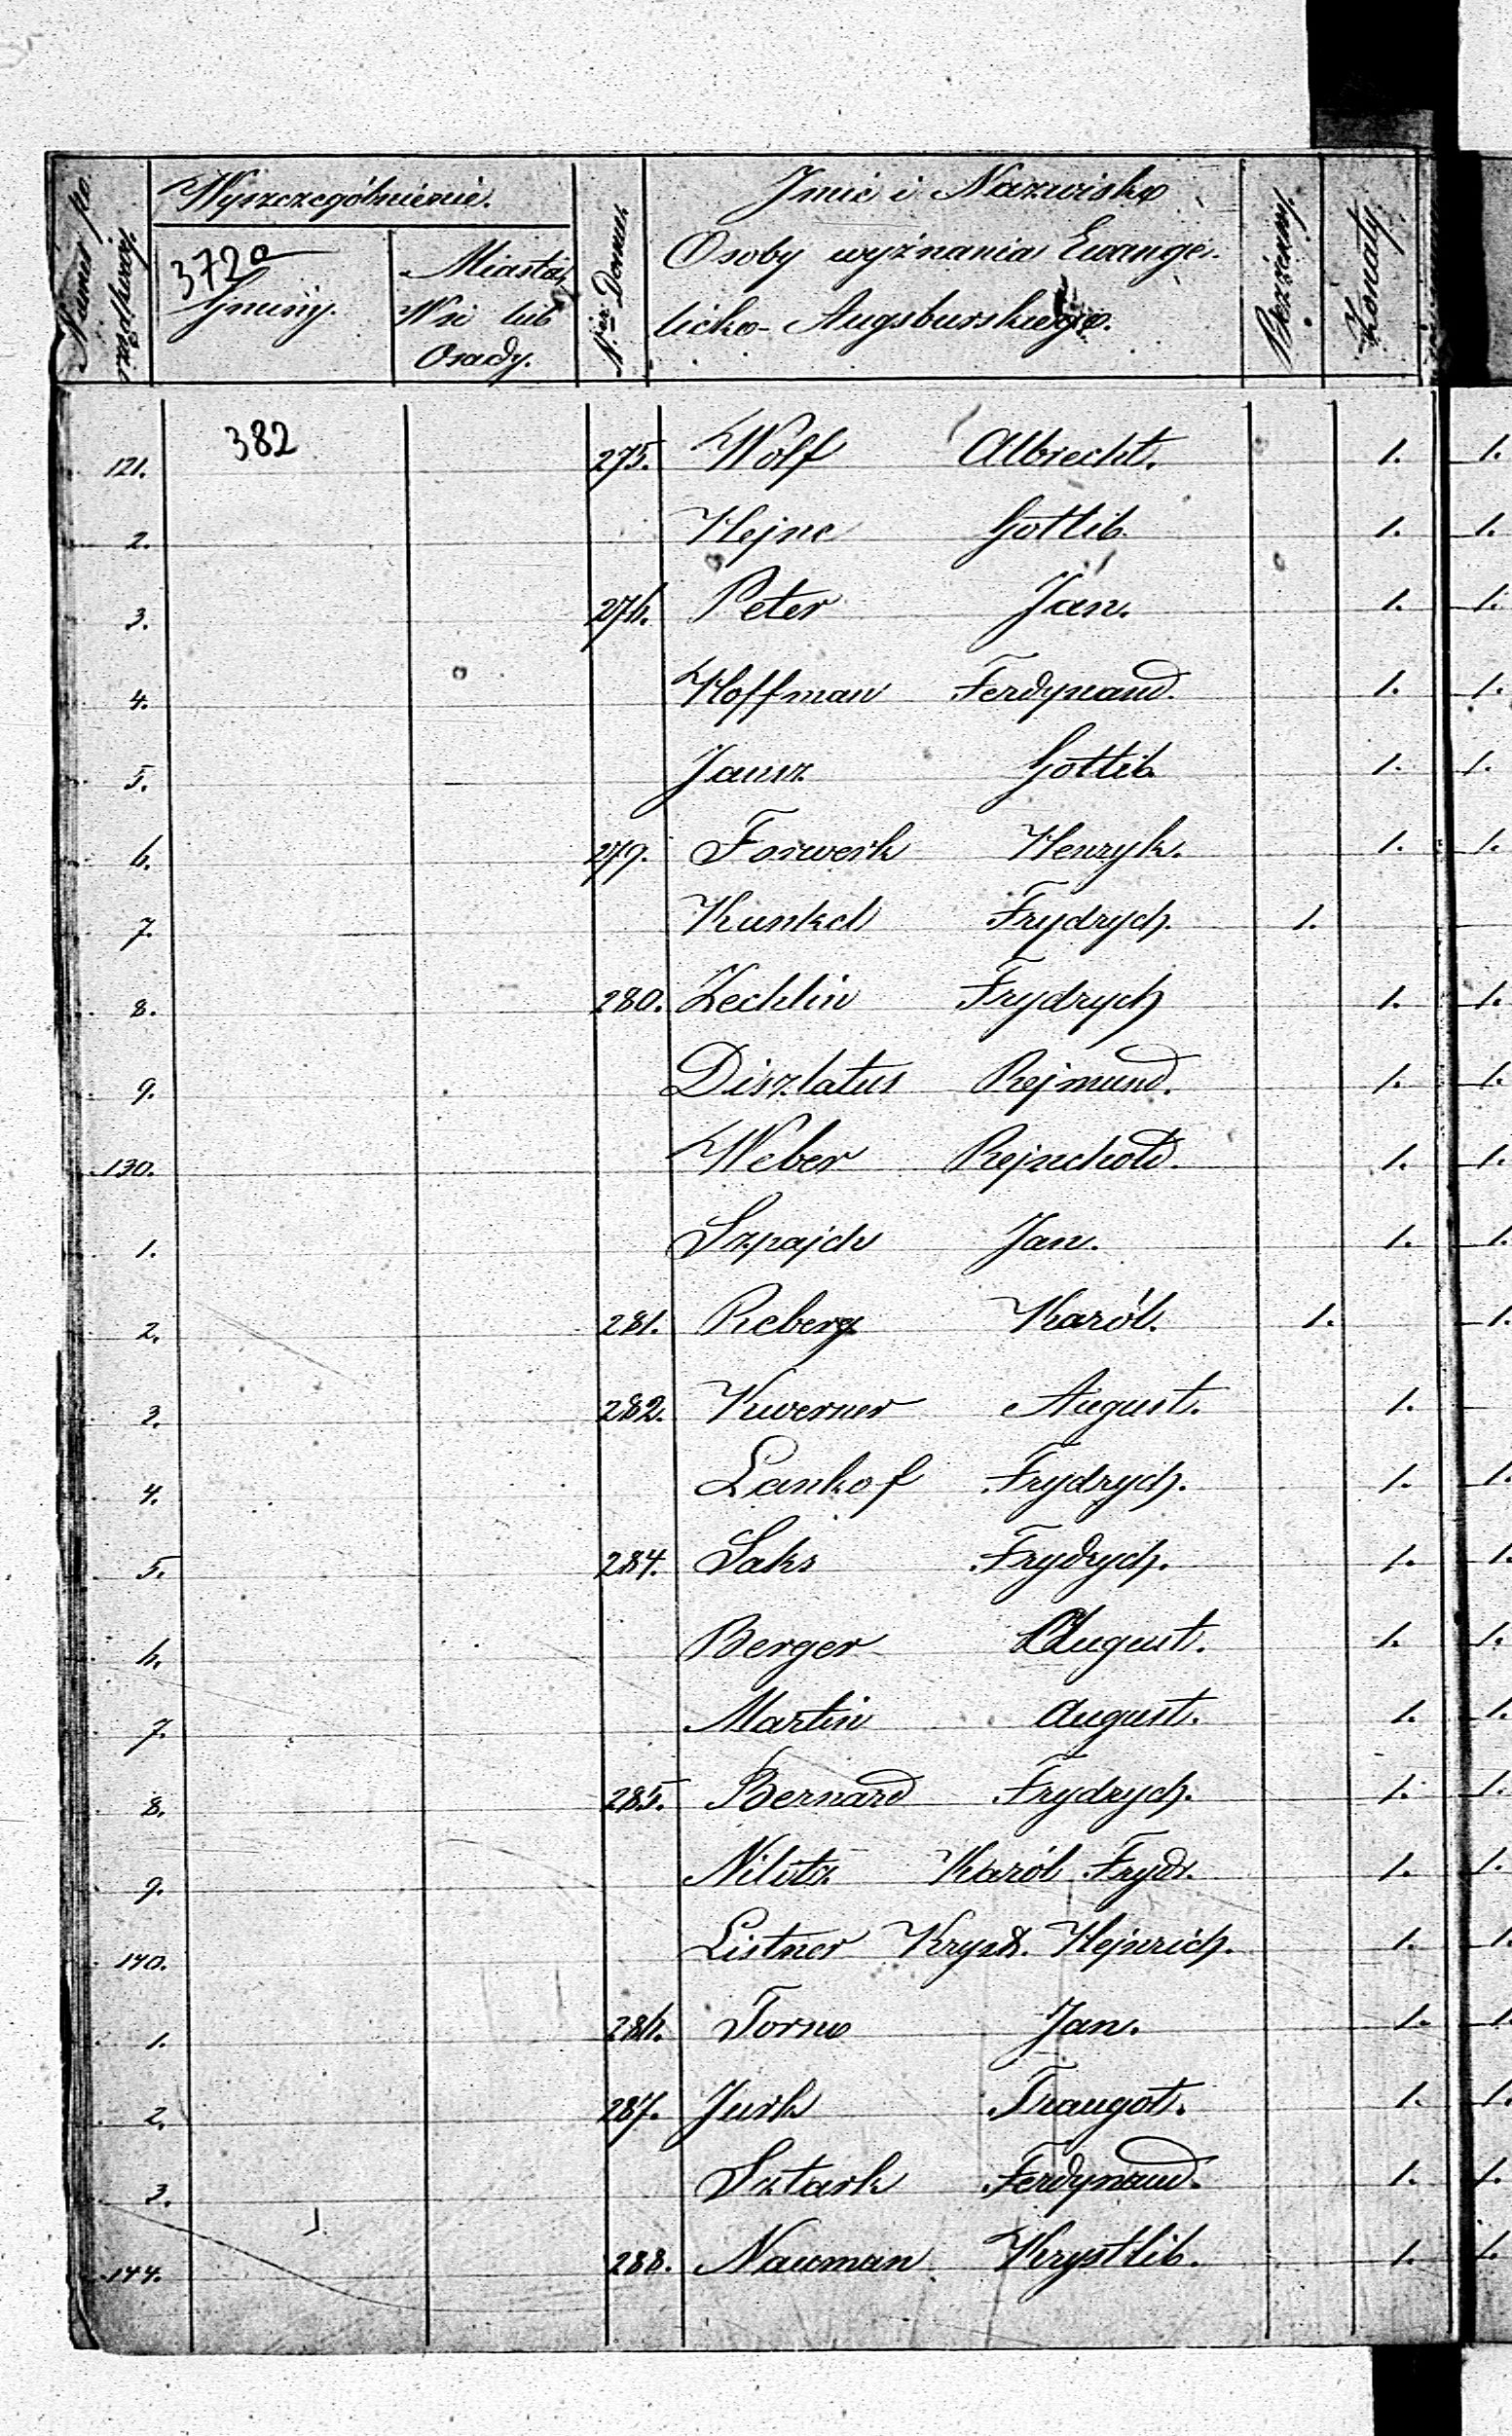 Numer po rządkowy. Wyszczególnienie. Nr Domu Imie i Nazwisko Bezżenny. Żonaty
372a Miasta, Osoby wyznania Ewange-
Gminy. Wsi lub licko-Augsburskiego.
Osady.
382
121. 275. Wolf Albrecht. 1. 1.
2. Hejne Gotlib. 1. 1.
3. 276. Peter Jan. 1. 1.
4. Hoffman Ferdynand. 1. 1.
5. Gotlib 1. 1.
6. 279. Forwerk Henryk. 1. 1.
7. Kunkel Frydrych. 1.
8. 280. Zechlin Frydrych 1. 1.
9. Diszlatus Rejmund. 1. 1.
130. Weber Rejnchold. 1. 1.
1. Szpajch Jan. 1. 1.
2. 281. Reberg Karól. 1. 1.
3. 282. Kwerner August. 1.
4. Lankof Frydrych. 1. 1.
5. 284. Saks Frydrych. 1. 1.
6. Berger August. 1. 1.
7. Martin August. 1. 1.
8. 285. Bernard Frydrych. 1. 1.
9. Karól Frydr. 1. 1.
140. Listner Kryst. Hejnrich. 1. 1.
1. 286. Torno Jan. 1. 1.
2. 287. Jurk Traugot. 1. 1.
3. Sztark Ferdynand. 1. 1.
144. 288. Nauman Krystlib. 1. 1.